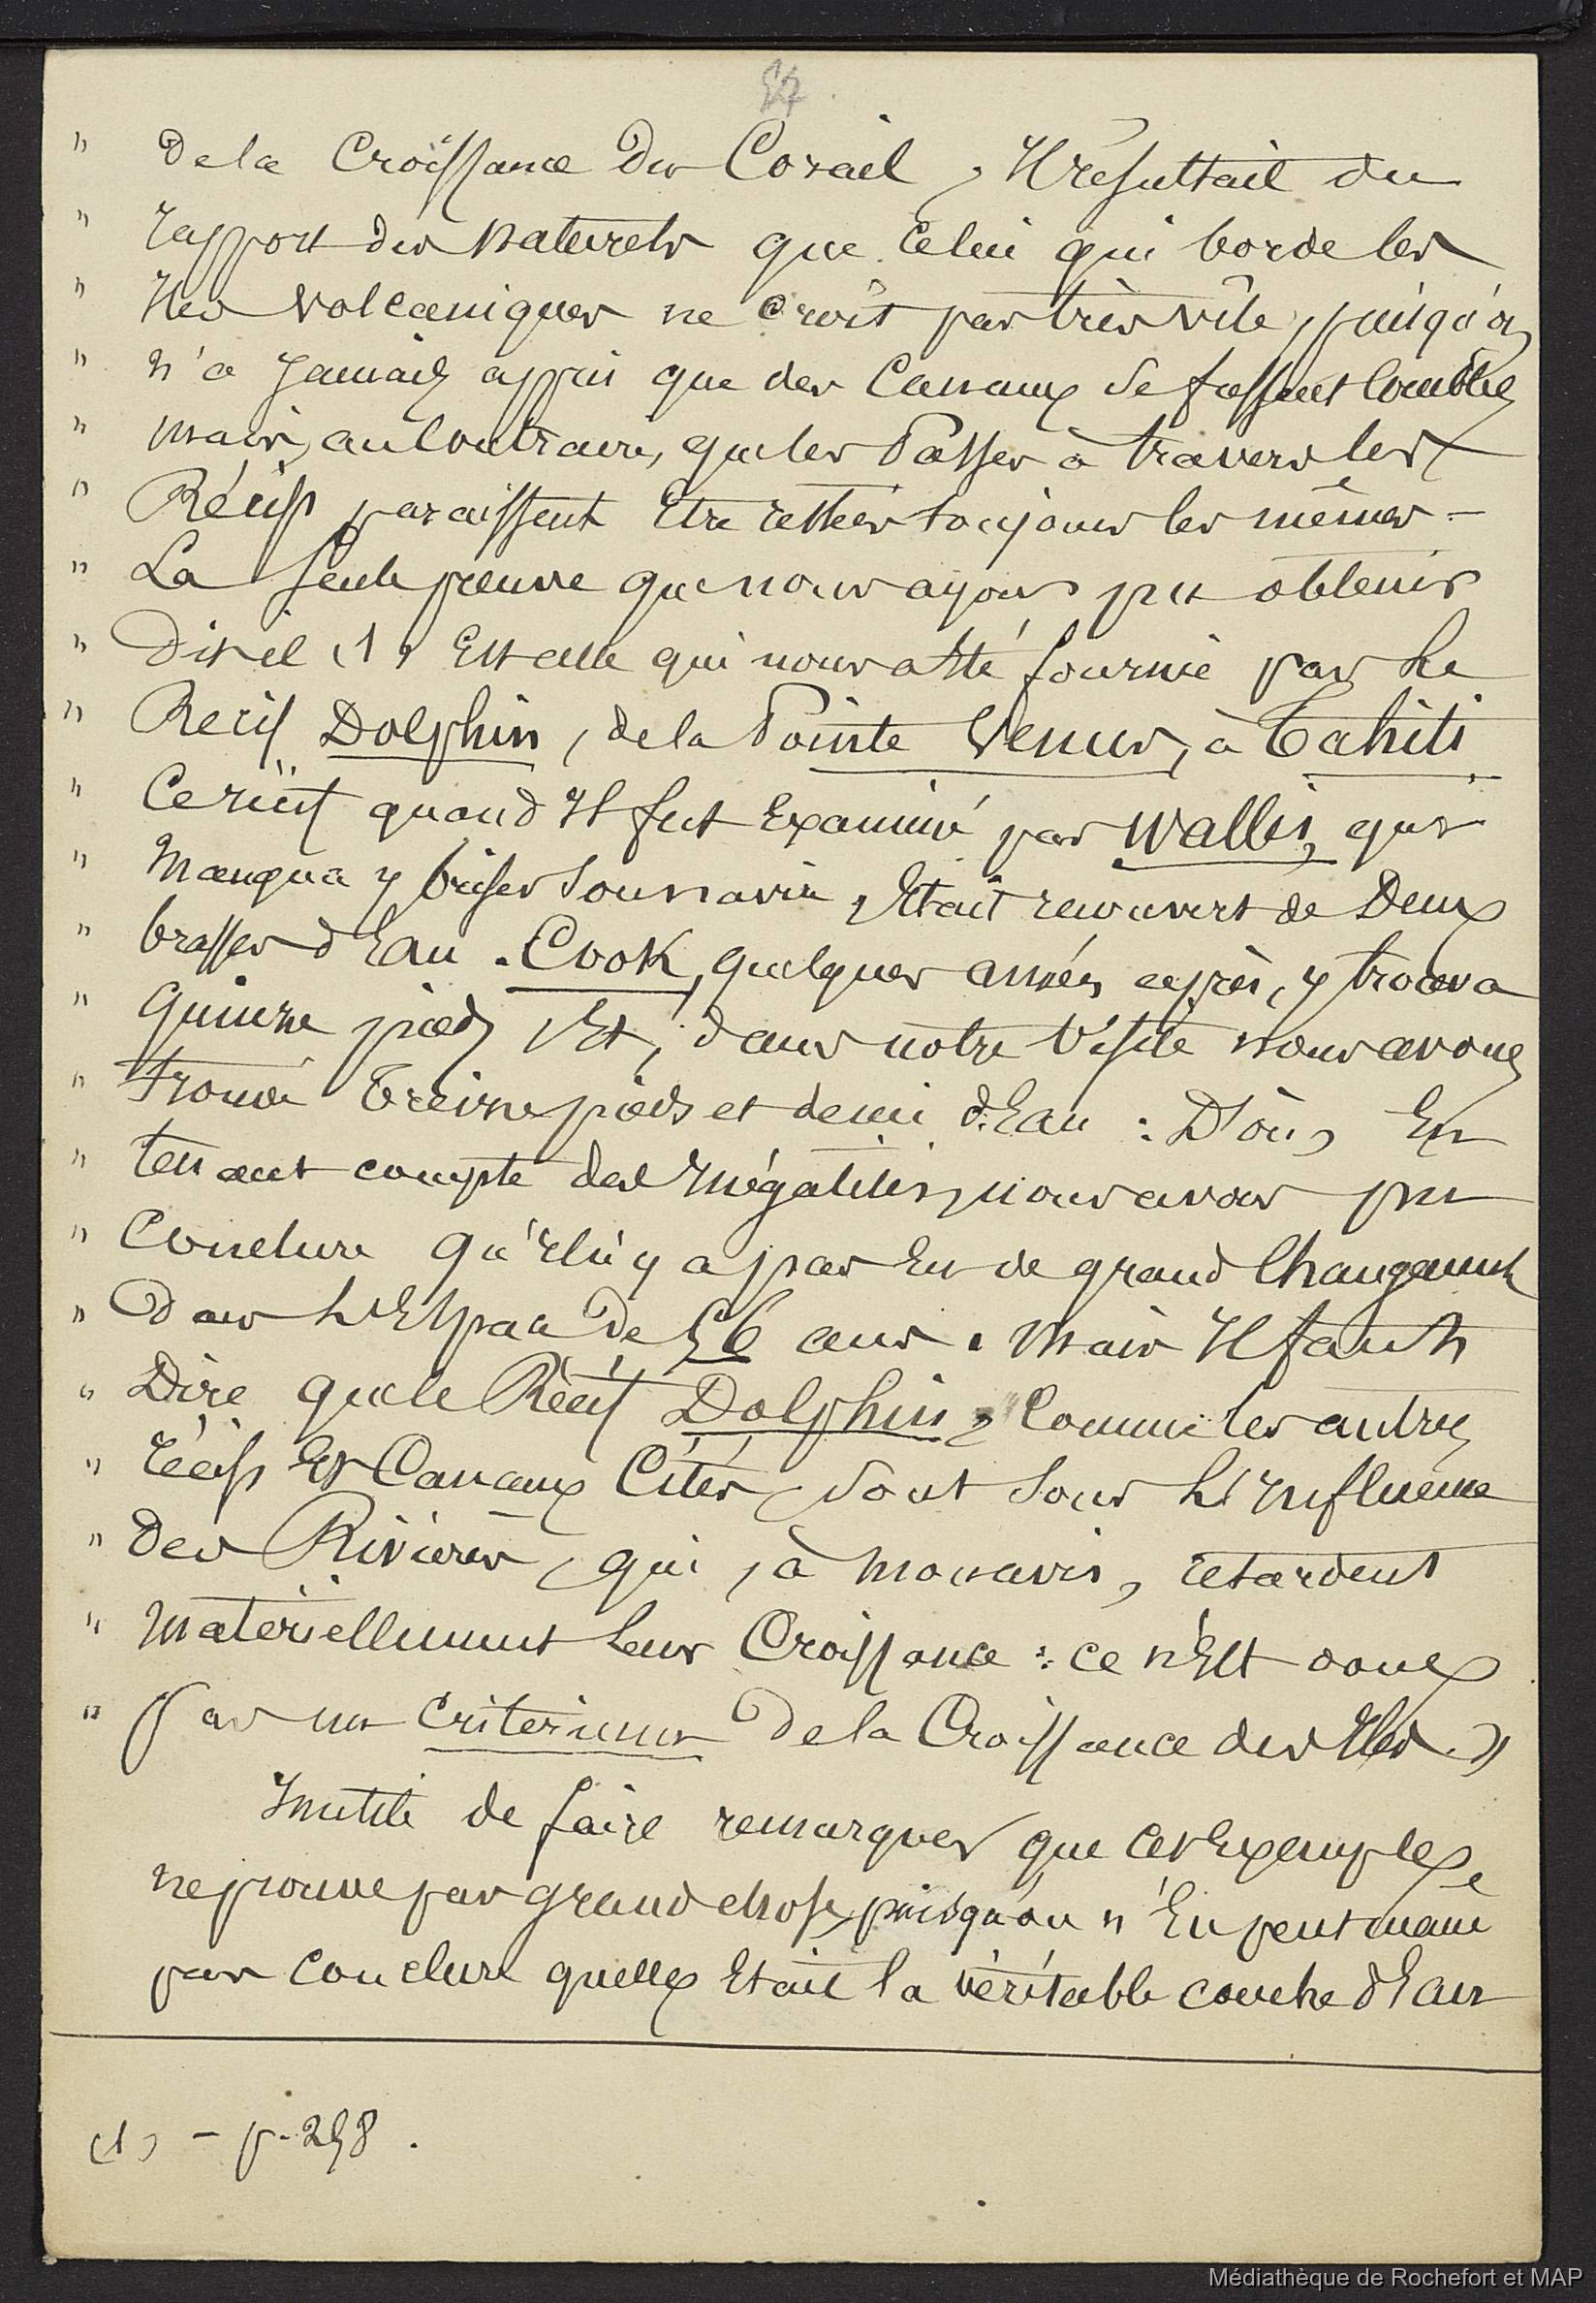 57
" de la Croissance du Corail, Il résultait du
" rapport des naturels que celui qui borde les
" Iles volcaniques ne croît pas très vite, puisqu'on
" n'a jamais appris que des Canaux se fussent comblés
" mais, au Contraire, que les Passes à travers les
" Récifs paraissent Etre restées toujours les mêmes. –
" La seule preuve que nous ayons pu obtenir
" dit-il (1), Est celle qui nous a Eté fournie par le
" Recif Dolphin, de la Pointe Venus, à Tahiti
" Ce récif quand Il fut Examiné par Wallis, qui
" manqua y briser son navire, Etait recouvert de Deux
" brasses d'Eau. Cook, quelques années après, y trouva
" Quinze pieds, Et, dans notre Visite nous avons
" trouvé Treize pieds et demi d'Eau : D'où, En
" tenant compte des Inégalités, nous avons pu
" Conclure qu'Il n'y a pas Eu de grand Changement
" Dans l'Espace de 56 ans. Mais Il faut
" Dire que le Récif Dolphin, Comme les autres
" récifs Et Canaux Cités, sont sous l'Influence
" Des Rivières, qui, à mon avis, retardent
" matériellement leur Croissance : ce n'Est donc
" pas un criterium de la Croissance des Iles. »
Inutile de faire remarquer que cet Exemple
ne prouve pas grand chose, puisqu'on n'En peut même
pas conclure quelle Etait la véritable couche d'Eau
(1) – p. 258.
Médiathèque de Rochefort et MAP